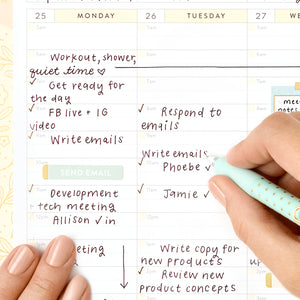 25 MONDAY 26 TUESDAY 27 WE
Workout, shower,
quiet time ♡
✓ Get ready for
the day
✓ FB live + IG
video
✓ Write emails
SEND EMAIL
✓ Development
+ tech meeting
Allison ✓ in
eeting
✓ Respond to
emails
Write emails
Phoebe ✓
✓ Jamie ✓
Write copy for
new products
✓ Review new
product concepts
mee
notes